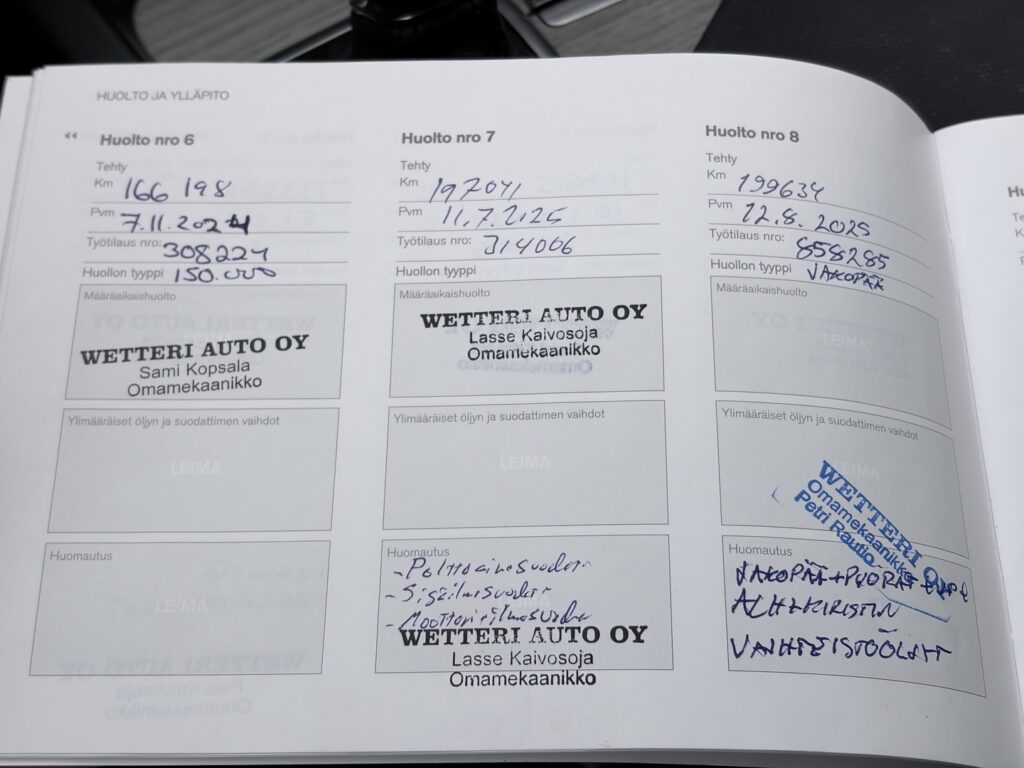 HUOLTO JA YLLÄPITO
Huolto nro 6
Tehty
Km 166 198
Pvm 7.11.2024
Työtilaus nro: 308224
Huollon tyyppi 150.000
Määräaikaishuolto
WETTERI AUTO OY
Sami Kopsala
Omamekaanikko
Ylimääräiset öljyn ja suodattimen vaihdot
LEIMA
Huomautus
LEIMA
Huolto nro 7
Tehty
Km 197041
Pvm 11.7.2125
Työtilaus nro: 314006
Huollon tyyppi
Määräaikaishuolto
WETTERI AUTO OY
Lasse Kaivosoja
Omamekaanikko
Ylimääräiset öljyn ja suodattimen vaihdot
LEIMA
Huomautus
- Polttoainesuodatin
- Sisäilmasuodatin
- Moottorinilmasuodatin
WETTERI AUTO OY
Lasse Kaivosoja
Omamekaanikko
Huolto nro 8
Tehty
Km 199634
Pvm 12.8.2025
Työtilaus nro: 858285
Huollon tyyppi JAKOPÄÄ
Määräaikaishuolto
LEIMA
Ylimääräiset öljyn ja suodattimen vaihdot
LEIMA
WETTERI OY
Omamekaanikko
Petri Rautio
Huomautus
JAKOPÄÄ+
VAIHTEISTOÖLJYT